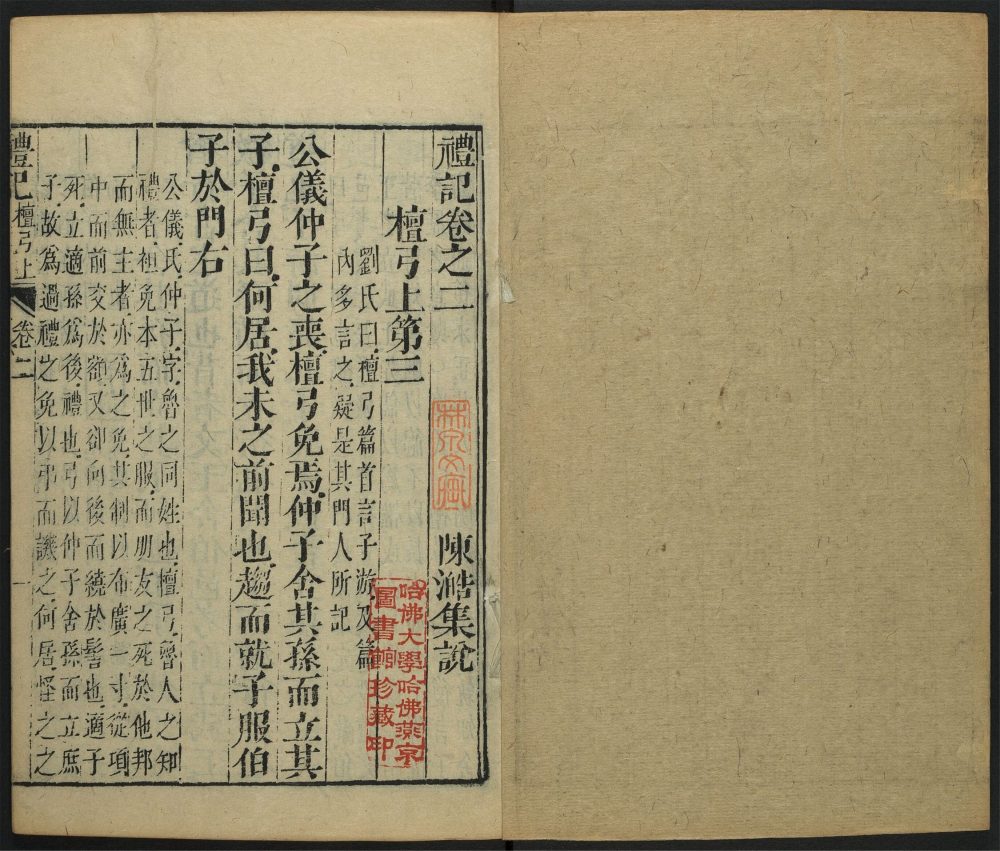 禮記卷之二
陳澔集說
檀弓上第三
劉氏曰檀弓篇首言子游及篇
內多言之疑是其門人所記
公儀仲子之喪檀弓免焉仲子舍其孫而立其
子檀弓曰何居我未之前聞也趨而就子服伯
子於門右
公儀氏仲子字魯之同姓也檀弓魯人之知
禮者袒免本五世之服而朋友之死於他邦
而無主者亦爲之免其制以布廣一寸從項
中而前交於額又卻向後而繞於髻也適子
死立適孫爲後禮也弓以仲子舍孫而立庶
子故爲過禮之免以弔而譏之何居怪之之
禮記 檀弓上 卷二 一
哈佛大學哈佛燕京
圖書館珍藏印